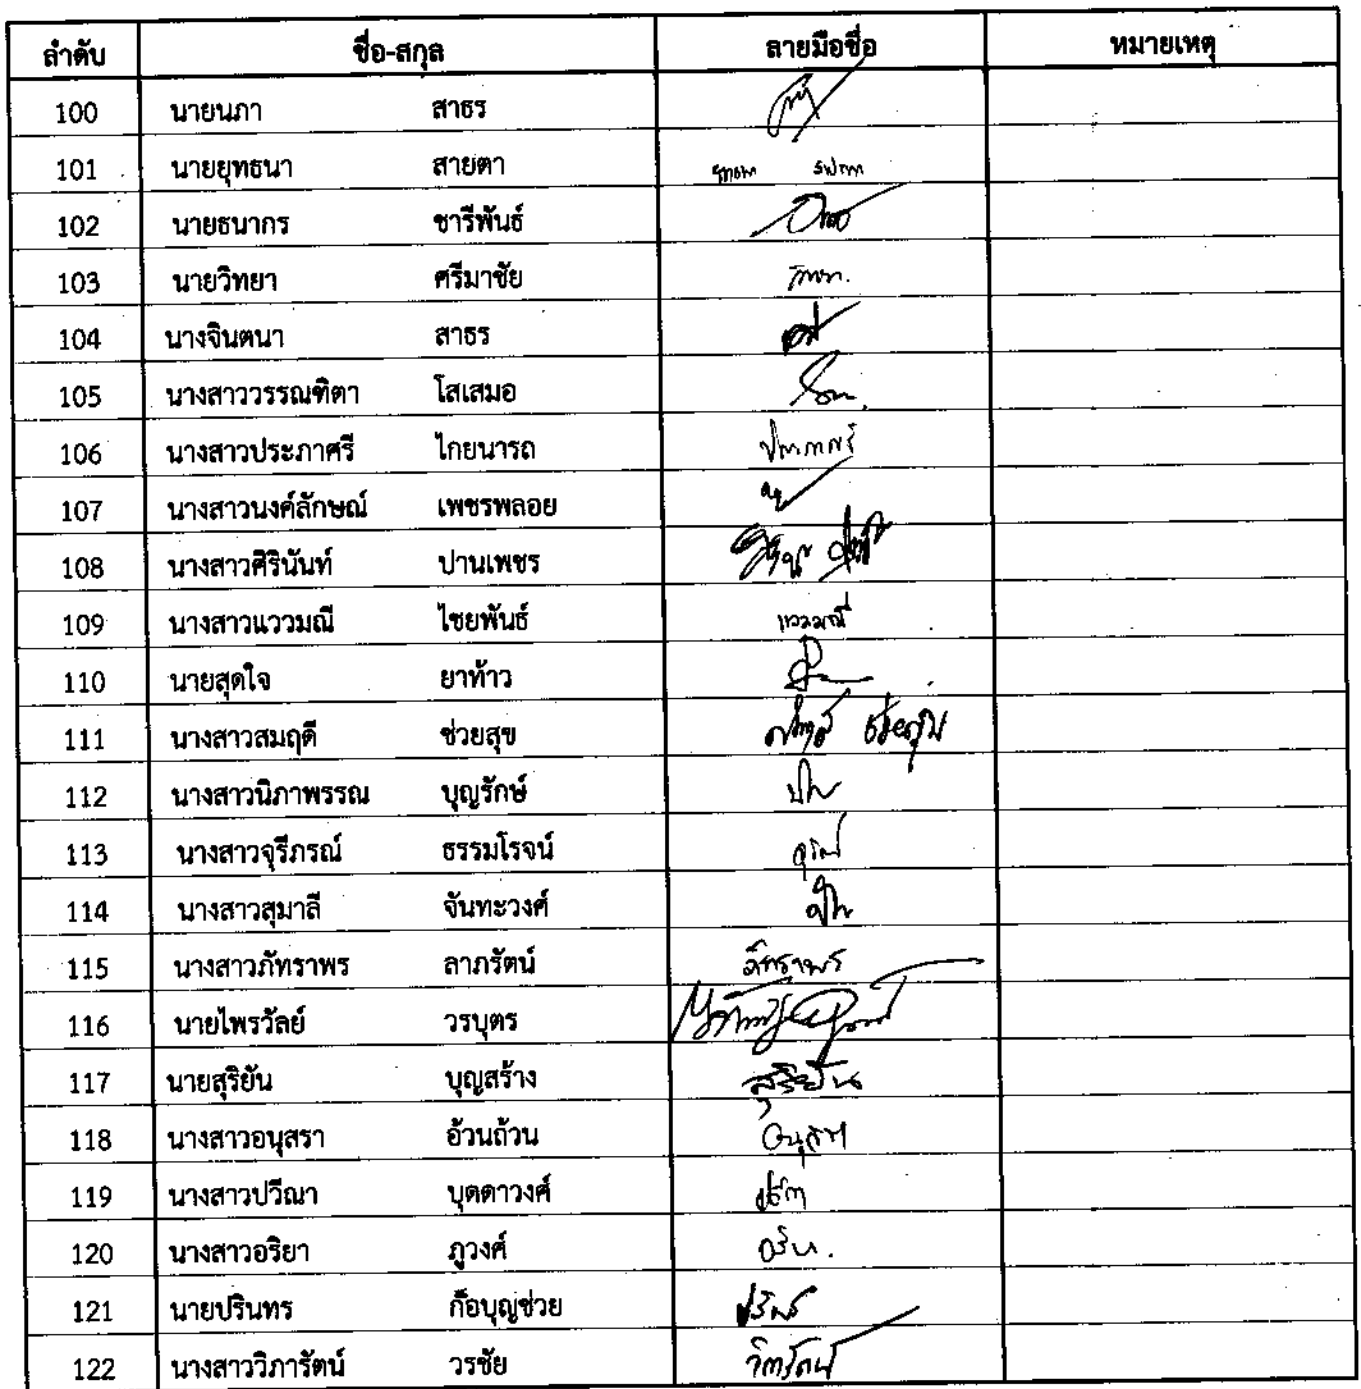 ลำดับ ชื่อ-สกุล ลายมือชื่อ หมายเหตุ
100 นายนภา สาธร
101 นายยุทธนา สายตา
102 นายธนากร ชารีพันธ์
103 นายวิทยา ศรีมาชัย
104 นางจินตนา สาธร
105 นางสาววรรณฑิตา โสเสมอ
106 นางสาวประภาศรี ไกยนารถ
107 นางสาวนงค์ลักษณ์ เพชรพลอย
108 นางสาวศิรินันท์ ปานเพชร
109 นางสาวแววมณี ไชยพันธ์ แววมณี
110 นายสุดใจ ยาท้าว
111 นางสาวสมฤดี ช่วยสุข
112 นางสาวนิภาพรรณ บุญรักษ์
113 นางสาวจุรีภรณ์ ธรรมโรจน์
114 นางสาวสุมาลี จันทะวงศ์
115 นางสาวภัทราพร ลาภรัตน์ ภัทราพร
116 นายไพรวัลย์ วรบุตร
117 นายสุริยัน บุญสร้าง สุริยัน
118 นางสาวอนุสรา อ้วนถ้วน อนุสรา
119 นางสาวปวีณา บุตดาวงศ์
120 นางสาวอริยา ภูวงศ์
121 นายปรินทร ก๊อบุญช่วย
122 นางสาววิภารัตน์ วรชัย วิภารัตน์